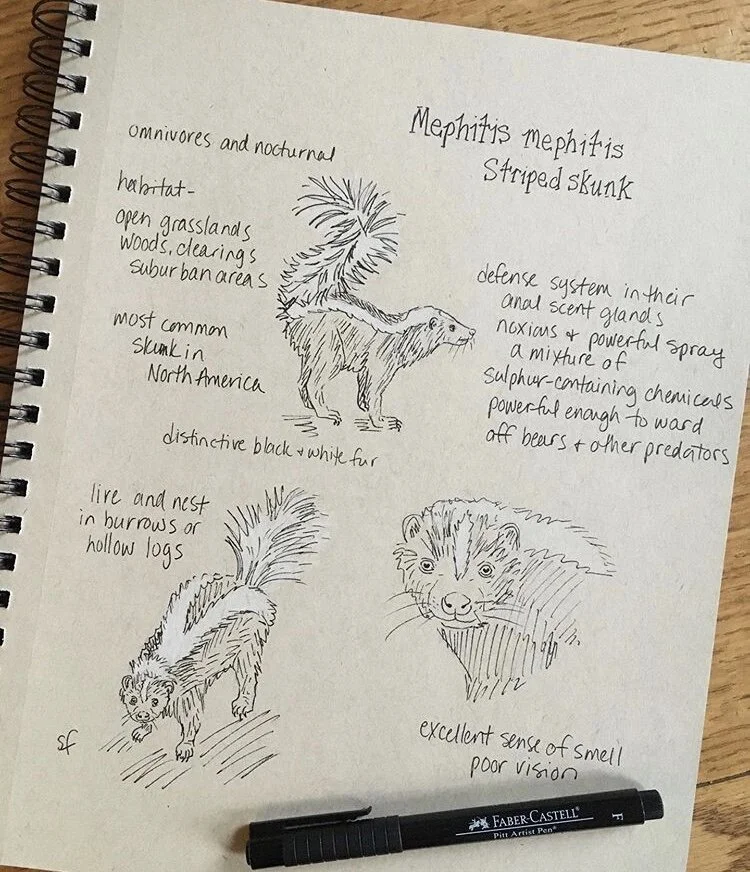 Mephitis mephitis
Striped skunk
omnivores and nocturnal
habitat-
open grasslands
woods, clearings
suburban areas
most common
skunk in
North America
defense system in their
anal scent glands
noxious + powerful spray
a mixture of
sulphur-containing chemicals
powerful enough to ward
off bears + other predators
distinctive black + white fur
live and nest
in burrows or
hollow logs
excellent sense of smell
poor vision
sf
FABER-CASTELL®
Pitt Artist Pen®
F